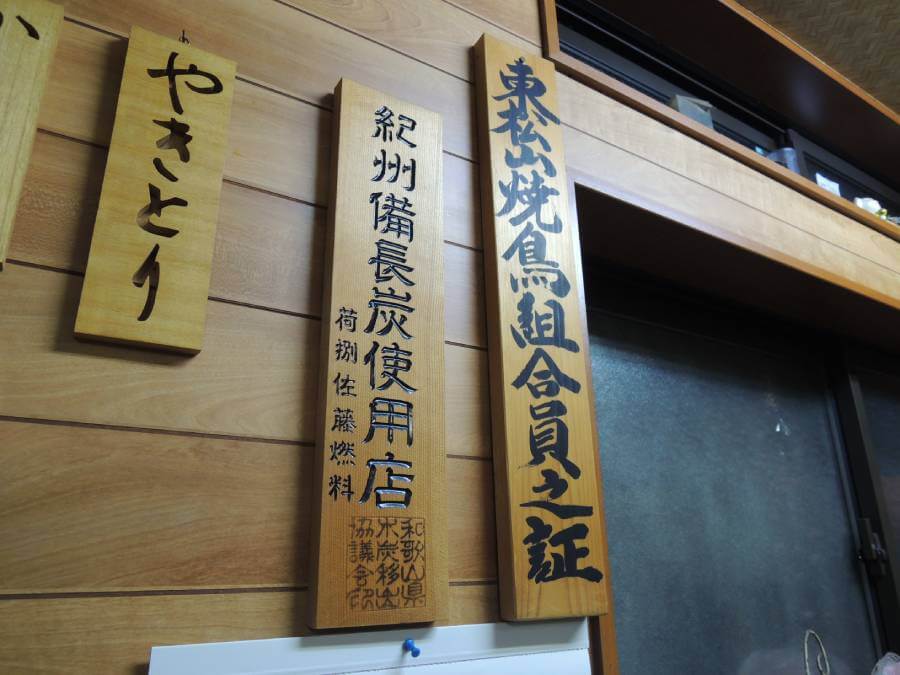 東松山焼鳥組合員之証
紀州備長炭使用店
荷捌佐藤燃料
和歌山県
木炭移出
協議会印
やきとり